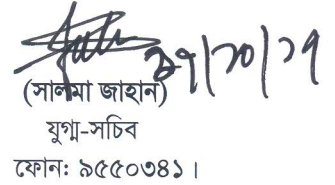 ১৭/১০/১৭
(সালমা জাহান)
যুগ্ম-সচিব
ফোন: ৯৫৫০৩৪১ ।